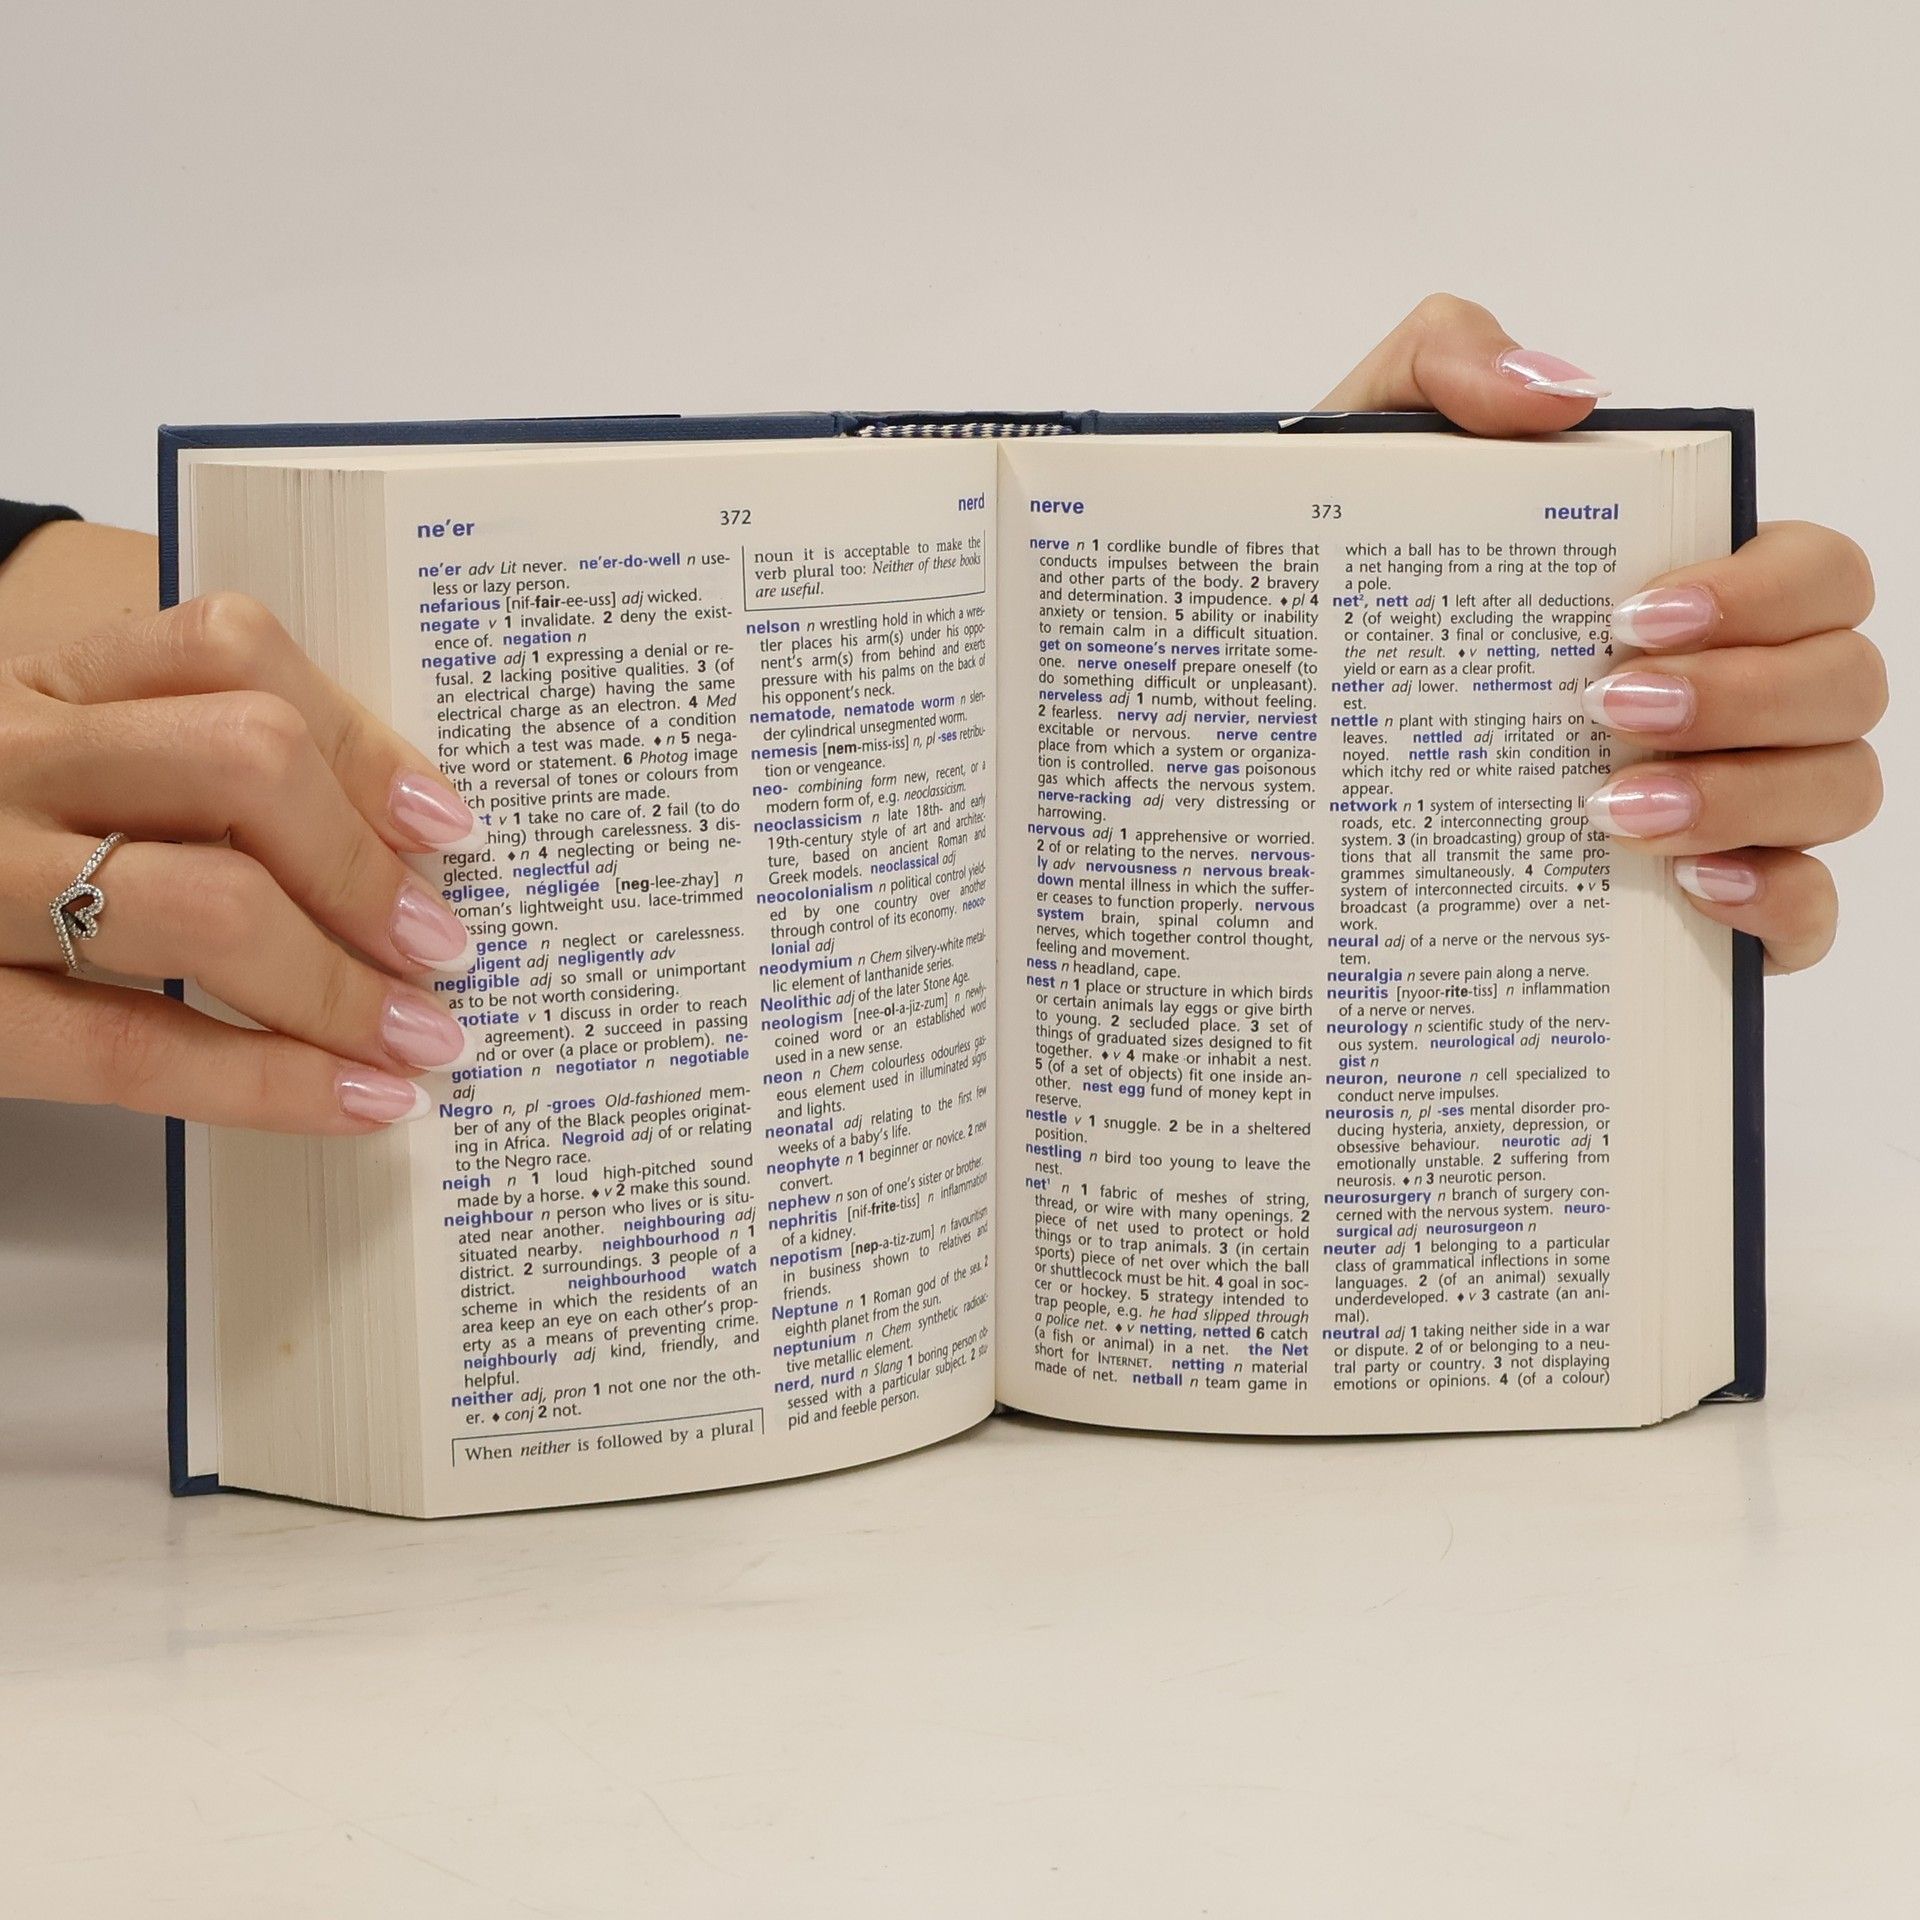 ne'er
372
nerd
ne'er adv Lit never. ne'er-do-well n use-
less or lazy person.
nefarious [nif-fair-ee-uss] adj wicked.
negate v 1 invalidate. 2 deny the exist-
ence of. negation n
negative adj 1 expressing a denial or re-
fusal. 2 lacking positive qualities. 3 (of
an electrical charge) having the same
electrical charge as an electron. 4 Med
indicating the absence of a condition
for which a test was made. ♦ n 5 nega-
tive word or statement. 6 Photog image
with a reversal of tones or colours from
positive prints are made.
v 1 take no care of. 2 fail (to do
through carelessness. 3 dis-
regard. ♦ n 4 neglecting or being ne-
glected. neglectful adj
négligée [neg-lee-zhay] n
lightweight usu. lace-trimmed
gown.
n neglect or carelessness.
adj negligently adv
negligible adj so small or unimportant
as to be not worth considering.
v 1 discuss in order to reach
agreement). 2 succeed in passing
or over (a place or problem). ne-
gotiation n negotiator n negotiable
adj
Negro n, pl -groes Old-fashioned mem-
ber of any of the Black peoples originat-
ing in Africa. Negroid adj of or relating
to the Negro race.
neigh n 1 loud high-pitched sound
made by a horse. ♦ v 2 make this sound.
neighbour n person who lives or is situ-
ated near another. neighbouring adj
situated nearby. neighbourhood n 1
district. 2 surroundings. 3 people of a
district. neighbourhood watch
scheme in which the residents of an
area keep an eye on each other's prop-
erty as a means of preventing crime.
neighbourly adj kind, friendly, and
helpful.
neither adj, pron 1 not one nor the oth-
er. ♦ conj 2 not.
When neither is followed by a plural
noun it is acceptable to make the
verb plural too: Neither of these books
are useful.
nelson n wrestling hold in which a wres-
tler places his arm(s) under his oppo-
nent's arm(s) from behind and exerts
pressure with his palms on the back of
his opponent's neck.
nematode, nematode worm n slen-
der cylindrical unsegmented worm.
nemesis [nem-miss-iss] n, pl -ses retribu-
tion or vengeance.
neo- combining form new, recent, or a
modern form of, e.g. neoclassicism.
neoclassicism n late 18th- and early
19th-century style of art and architec-
ture, based on ancient Roman and
Greek models. neoclassical adj
neocolonialism n political control yield-
ed by one country over another
through control of its economy. neoco-
lonial adj
neodymium n Chem silvery-white metal-
lic element of lanthanide series.
Neolithic adj of the later Stone Age.
neologism [nee-ol-a-jiz-zum] n newly-
coined word or an established word
used in a new sense.
neon n Chem colourless odourless gas-
eous element used in illuminated signs
and lights.
neonatal adj relating to the first few
weeks of a baby's life.
neophyte n 1 beginner or novice. 2 new
convert.
nephew n son of one's sister or brother.
nephritis [nif-frite-tiss] n inflammation
of a kidney.
nepotism [nep-a-tiz-zum] n favouritism
in business shown to relatives and
friends.
Neptune n 1 Roman god of the sea. 2
eighth planet from the sun.
neptunium n Chem synthetic radioac-
tive metallic element.
nerd, nurd n Slang 1 boring person ob-
sessed with a particular subject. 2 stu-
pid and feeble person.
nerve
373
neutral
nerve n 1 cordlike bundle of fibres that
conducts impulses between the brain
and other parts of the body. 2 bravery
and determination. 3 impudence. ♦ pl 4
anxiety or tension. 5 ability or inability
to remain calm in a difficult situation.
get on someone's nerves irritate some-
one. nerve oneself prepare oneself (to
do something difficult or unpleasant).
nerveless adj 1 numb, without feeling.
2 fearless. nervy adj nervier, nerviest
excitable or nervous. nerve centre
place from which a system or organiza-
tion is controlled. nerve gas poisonous
gas which affects the nervous system.
nerve-racking adj very distressing or
harrowing.
nervous adj 1 apprehensive or worried.
2 of or relating to the nerves. nervous-
ly adv nervousness n nervous break-
down mental illness in which the suffer-
er ceases to function properly. nervous
system brain, spinal column and
nerves, which together control thought,
feeling and movement.
ness n headland, cape.
nest n 1 place or structure in which birds
or certain animals lay eggs or give birth
to young. 2 secluded place. 3 set of
things of graduated sizes designed to fit
together. ♦ v 4 make or inhabit a nest.
5 (of a set of objects) fit one inside an-
other. nest egg fund of money kept in
reserve.
nestle v 1 snuggle. 2 be in a sheltered
position.
nestling n bird too young to leave the
nest.
net¹ n 1 fabric of meshes of string,
thread, or wire with many openings. 2
piece of net used to protect or hold
things or to trap animals. 3 (in certain
sports) piece of net over which the ball
or shuttlecock must be hit. 4 goal in soc-
cer or hockey. 5 strategy intended to
trap people, e.g. he had slipped through
a police net. ♦ v netting, netted 6 catch
(a fish or animal) in a net. the Net
short for INTERNET. netting n material
made of net. netball n team game in
which a ball has to be thrown through
a net hanging from a ring at the top of
a pole.
net², nett adj 1 left after all deductions.
2 (of weight) excluding the wrapping
or container. 3 final or conclusive, e.g.
the net result. ♦ v netting, netted 4
yield or earn as a clear profit.
nether adj lower. nethermost adj
est.
nettle n plant with stinging hairs on
leaves. nettled adj irritated or an-
noyed. nettle rash skin condition in
which itchy red or white raised patches
appear.
network n 1 system of intersecting
roads, etc. 2 interconnecting group
system. 3 (in broadcasting) group of sta-
tions that all transmit the same pro-
grammes simultaneously. 4 Computers
system of interconnected circuits. ♦ v 5
broadcast (a programme) over a net-
work.
neural adj of a nerve or the nervous sys-
tem.
neuralgia n severe pain along a nerve.
neuritis [nyoor-rite-tiss] n inflammation
of a nerve or nerves.
neurology n scientific study of the nerv-
ous system. neurological adj neurolo-
gist n
neuron, neurone n cell specialized to
conduct nerve impulses.
neurosis n, pl -ses mental disorder pro-
ducing hysteria, anxiety, depression, or
obsessive behaviour. neurotic adj 1
emotionally unstable. 2 suffering from
neurosis. ♦ n 3 neurotic person.
neurosurgery n branch of surgery con-
cerned with the nervous system. neuro-
surgical adj neurosurgeon n
neuter adj 1 belonging to a particular
class of grammatical inflections in some
languages. 2 (of an animal) sexually
underdeveloped. ♦ v 3 castrate (an ani-
mal).
neutral adj 1 taking neither side in a war
or dispute. 2 of or belonging to a neu-
tral party or country. 3 not displaying
emotions or opinions. 4 (of a colour)